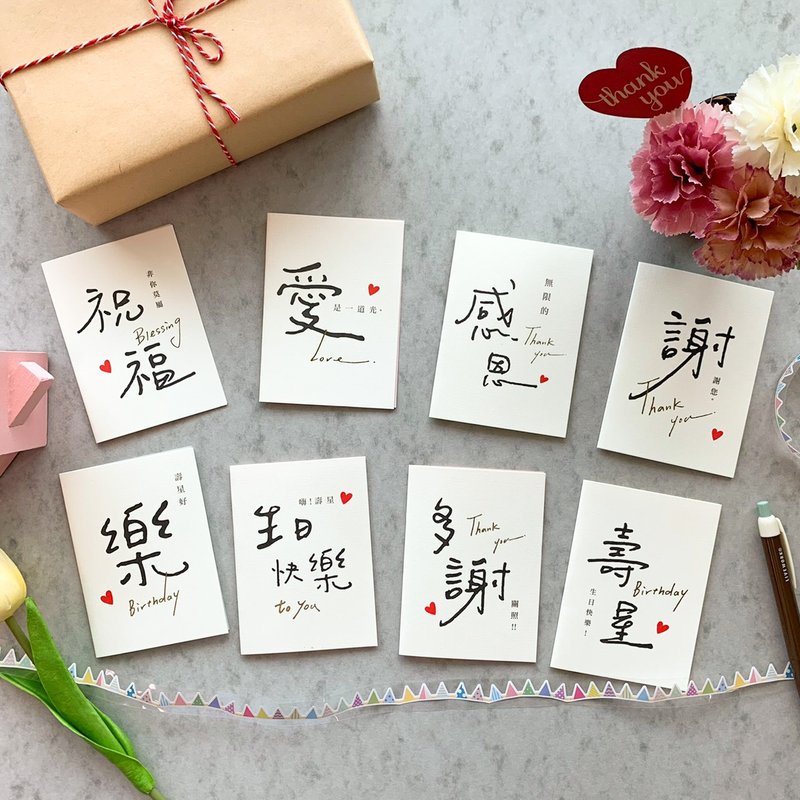 thank
you
非你莫屬
祝
Blessing
福
愛
是一道光。
Love.
無限的
感
Thank
you
恩
謝
謝您。
Thank
you
壽星好
樂
Birthday
嗨！壽星
生日
快樂
to you
多
Thank
you
謝
關照!!
壽
Birthday
星
生日快樂！